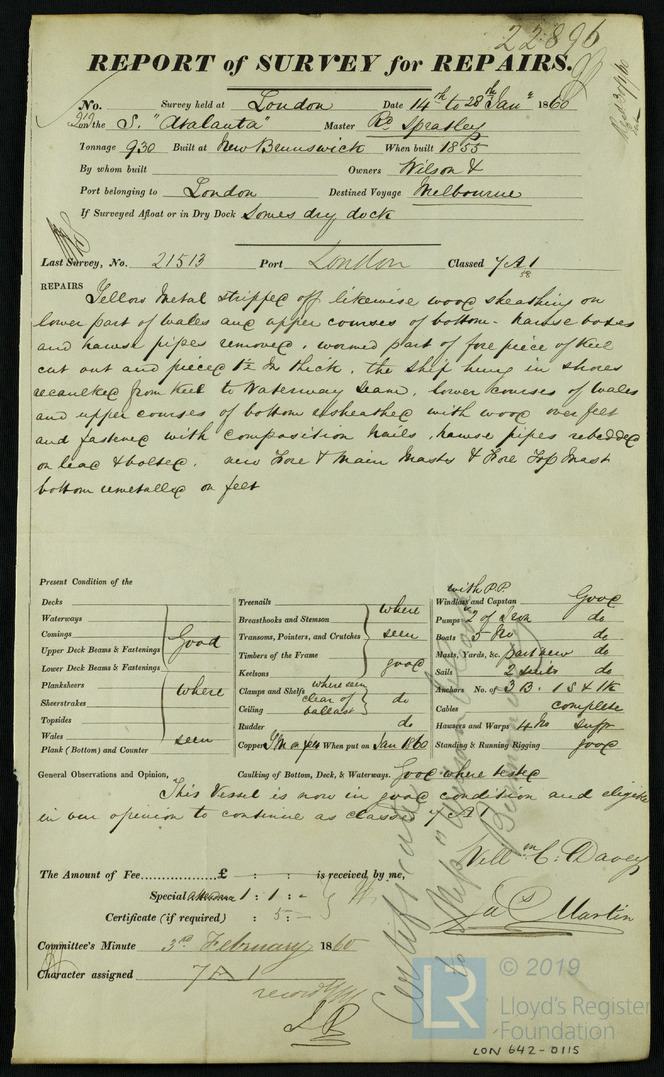 22896
REPORT of SURVEY for REPAIRS.
No. Survey held at London Date 14th to 28th Jany 1860
on the S. "Atalanta" Master Rd Spratley
Tonnage 930 Built at New Brunswick When built 1855
By whom built Owners Wilson &
Port belonging to London Destined Voyage Melbourne
If Surveyed Afloat or in Dry Dock Somes dry dock
Last Survey, No. 21513 Port London Classed 7 A 1
58
REPAIRS Yellow Metal stripped off likewise wood sheathing on
lower part of wales and upper courses of bottom - hawse boxes
and hawse pipes removed, wormed part of fore piece of keel
cut out and pieced 1½ In thick, the ship hung in shores
recaulked from keel to Waterway seam, lower courses of wales
and upper courses of bottom resheathed with wood over felt
and fastened with composition nails, hawse pipes rebedded
on lead & bolted. new Fore & Main Masts & Fore Top Mast
bottom remetalled on felt
Present Condition of the
Decks
Waterways
Comings
Upper Deck Beams & Fastenings
Lower Deck Beams & Fastenings
Good
Planksheers
Sheerstrakes
Topsides
Wales
Plank (Bottom) and Counter
where
seen
Treenails
Breasthooks and Stemson
Transoms, Pointers, and Crutches
Timbers of the Frame
Keelsons
where
seen
good
Clamps and Shelfs where seen
Ceiling clear of ballast do
Rudder do
Copper Y M on felt When put on Jan 1860
with P.P.
Windlass and Capstan Good
Pumps 2 of Iron do
Boats 5 No do
Masts, Yards, &c. part new do
Sails 2 suits do
Anchors No. of 3 B. 1 S & 1 K
Cables complete
Hawsers and Warps 4 No Sufft
Standing & Running Rigging good
General Observations and Opinion, Caulking of Bottom, Deck, & Waterways. Good where tested
This Vessel is now in good condition and eligible
in our opinion to continue as classed 7 A 1
Willm C. Davey
Jas Martin
The Amount of Fee £ : : is received by me,
Special 1 : 1 : -
Certificate (if required) : 5 : -
Certificate
to Ship
Committee's Minute 3rd February 1860
Character assigned 7 A 1
© 2019
LR
Lloyd's Register
Foundation
LON 642-0115